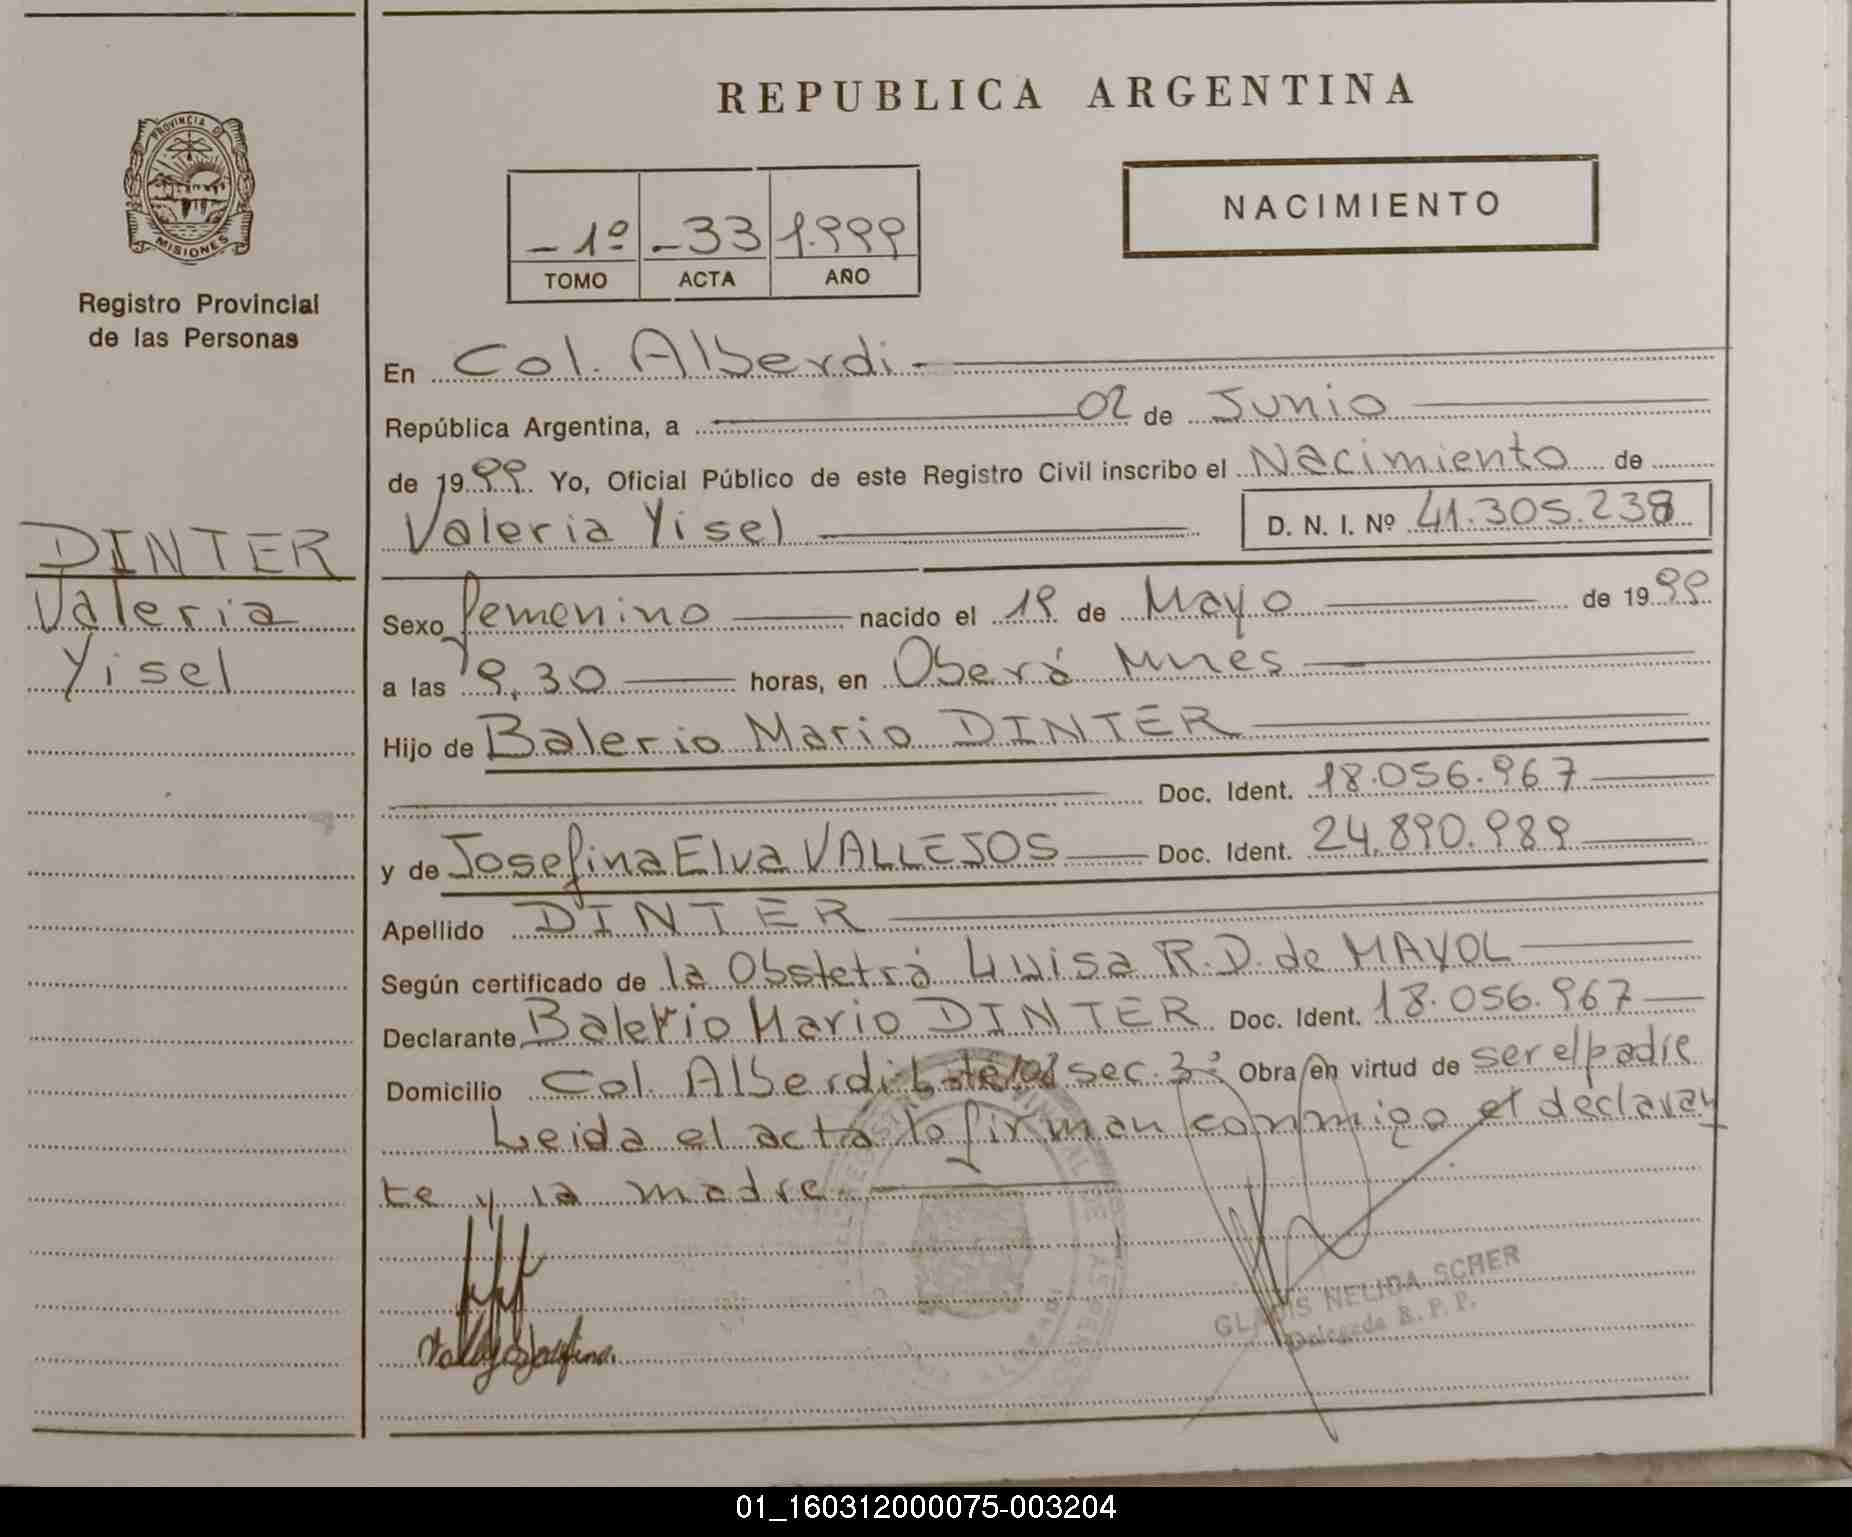 REPUBLICA ARGENTINA
PROVINCIA DE
MISIONES
Registro Provincial
de las Personas
- 1º - 33 1.999
TOMO ACTA AÑO
NACIMIENTO
En Col. Alberdi -
República Argentina, a 02 de Junio
de 1999 Yo, Oficial Público de este Registro Civil inscribo el Nacimiento de
Valeria Yisel D. N. I. Nº 41.305.238
DINTER
Valeria
Yisel
Sexo femenino nacido el 19 de Mayo de 1999
a las 9,30 horas, en Oberá Mnes
Hijo de Balerio Mario DINTER
Doc. Ident. 18.056.967
y de Josefina Elva VALLEJOS Doc. Ident. 24.890.989
Apellido DINTER
Según certificado de la Obstetrá Luisa R.D. de MAYOL
Declarante Balerio Mario DINTER Doc. Ident. 18.056.967
Domicilio Col. Alberdi sec. 3ª Obra en virtud de ser el padre
Leida el acta lo firman conmigo el declaran
te y la madre
GLADIS NELIDA SCHER
Delegada R. P. P.
01_160312000075-003204